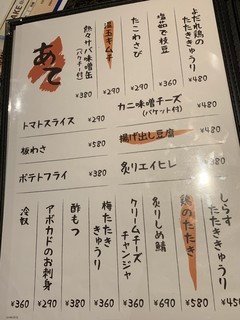 あて
よだれ鶏のたたききゅうり ¥480
塩茹で枝豆 ¥360
たこわさび ¥290
温玉キムチ ¥290
熱々サバ味噌缶(バケッキー付) ¥380
カニ味噌チーズ(バケット付) ¥480
トマトスライス ¥290
揚げ出し豆腐 ¥480
板わさ ¥580
炙りエイヒレ ¥480
ポテトフライ ¥380
しらすたたききゅうり ¥450
鶏のたたき ¥580
炙りしめ鯖 ¥690
クリームチーズチャンジャ ¥360
梅たたききゅうり ¥360
酢もつ ¥380
アボカドのお刺身 ¥290
冷奴 ¥360